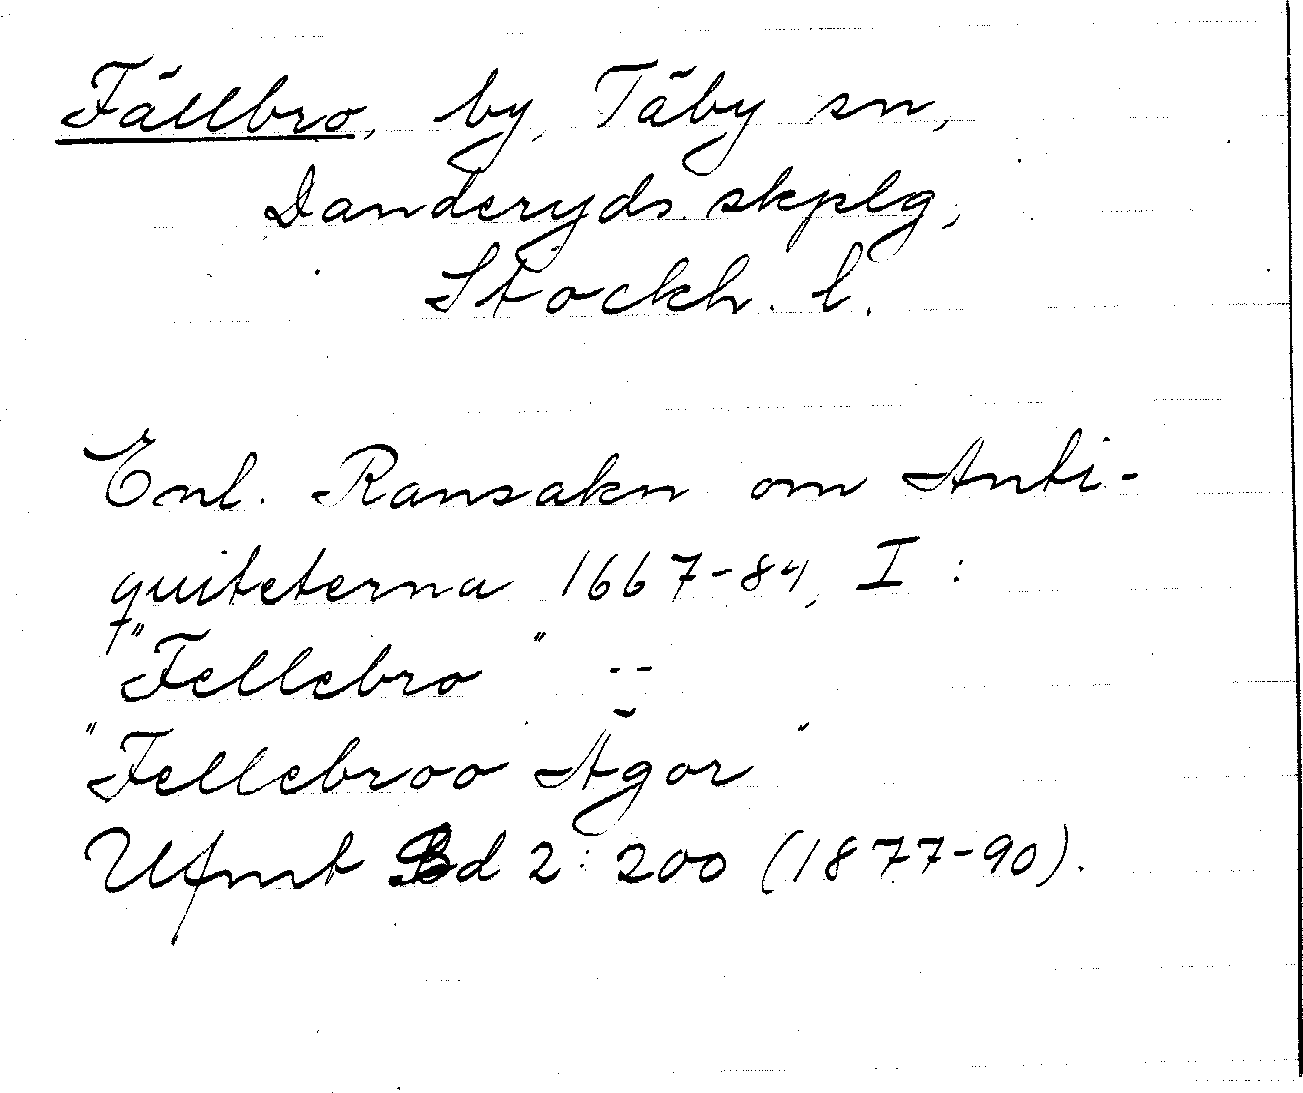 Fällbro, by, Täby sn,
Danderyds skplg,
Stockh. l.
Enl. Ransakn om Anti-
quiteterna 1667-84, I :
"Fellebro" --
"Fellebroo Ägor"
Ufmt Bd 2: 200 (1877-90).